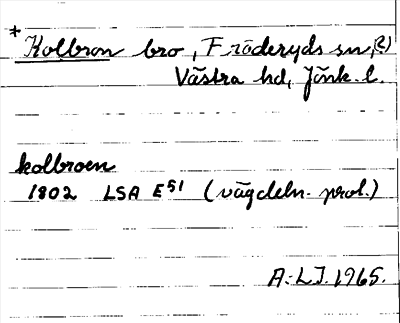 *Kolbron bro, Fröderyds sn, (?)
Västra hd, Jönk. l.
kolbroen
1802 LSA E51 (vägdeln. prot.)
A.-L.J. 1965.